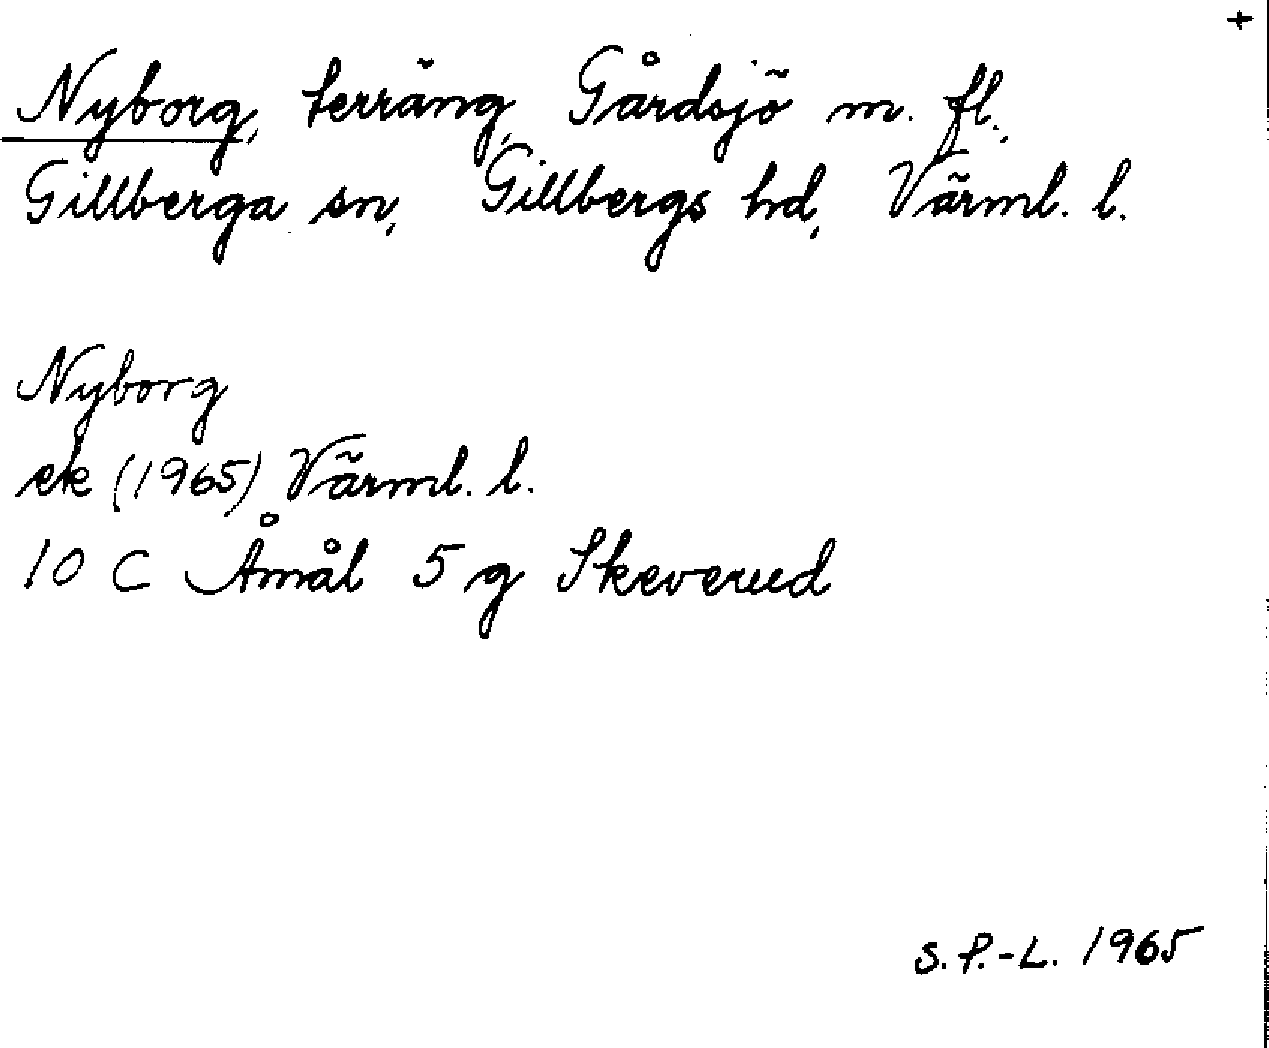 +
Nyborg, terräng, Gårdsjö m. fl.,
Gillberga sn, Gillbergs hd, Värml. l.
Nyborg
ek (1965) Värml. l.
10 C Åmål 5 g Skeverud
S. P.-L. 1965